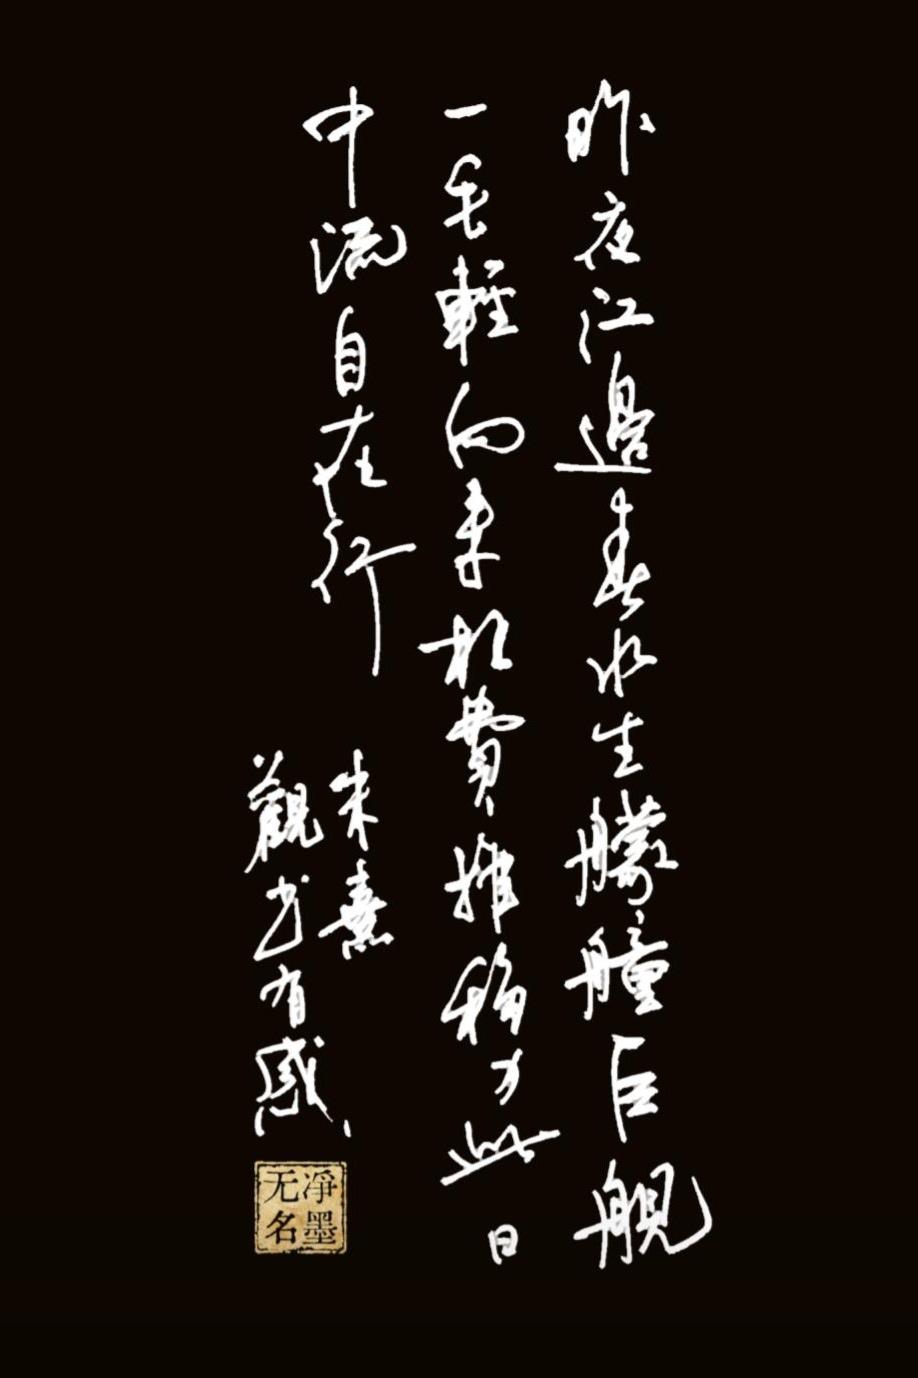 昨夜江邊春水生艨艟巨舰
一毛輕向来枉費推移力此日
中流自在行
朱熹
觀书有感
净墨
无名